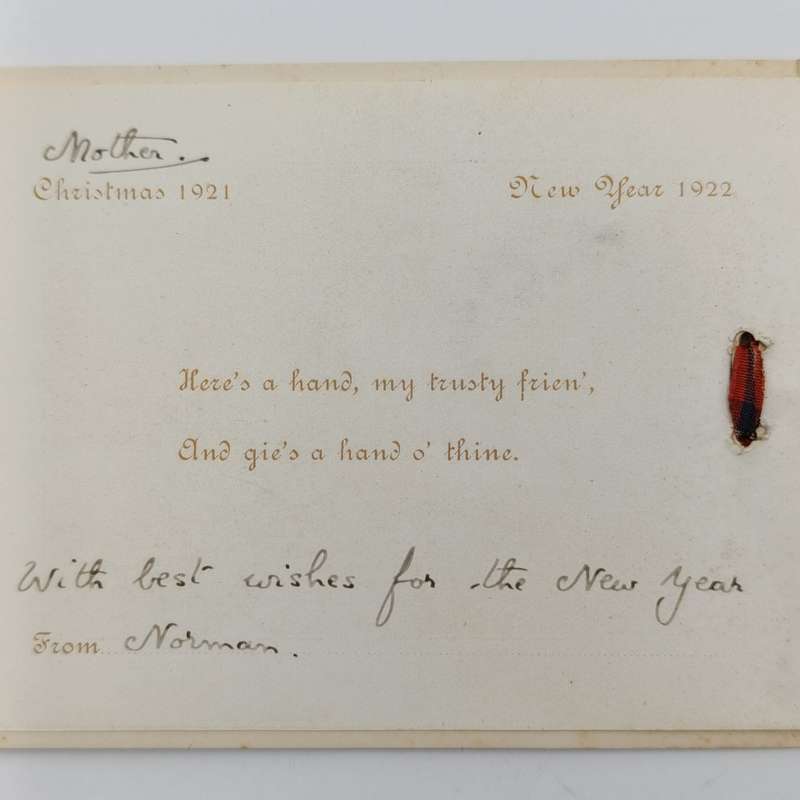 Mother.
Christmas 1921 New Year 1922
Here's a hand, my trusty frien',
And gie's a hand o' thine.
With best wishes for the New Year
From Norman.